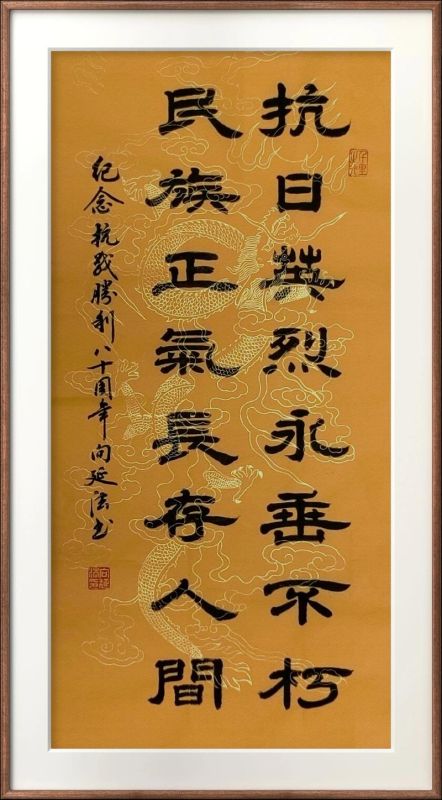 抗日英烈永垂不朽
民族正氣長存人間
纪念抗战勝利八十周年向延法书